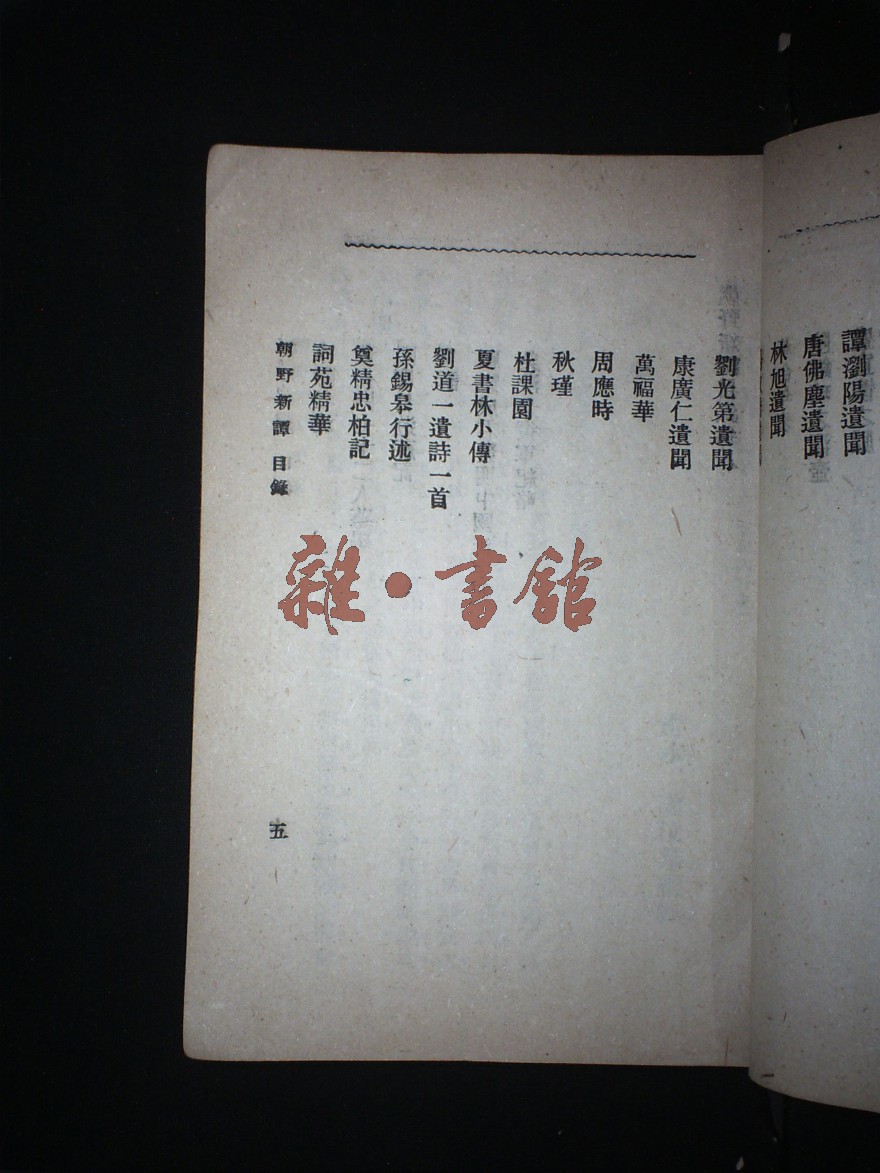 譚瀏陽遺聞
唐佛塵遺聞
林旭遺聞
劉光第遺聞
康廣仁遺聞
萬福華
周應時
秋瑾
杜課園
夏書林小傳
劉道一遺詩一首
孫錫皋行述
奠精忠柏記
詞苑精華
朝野新譚 目錄
五
雜·書館